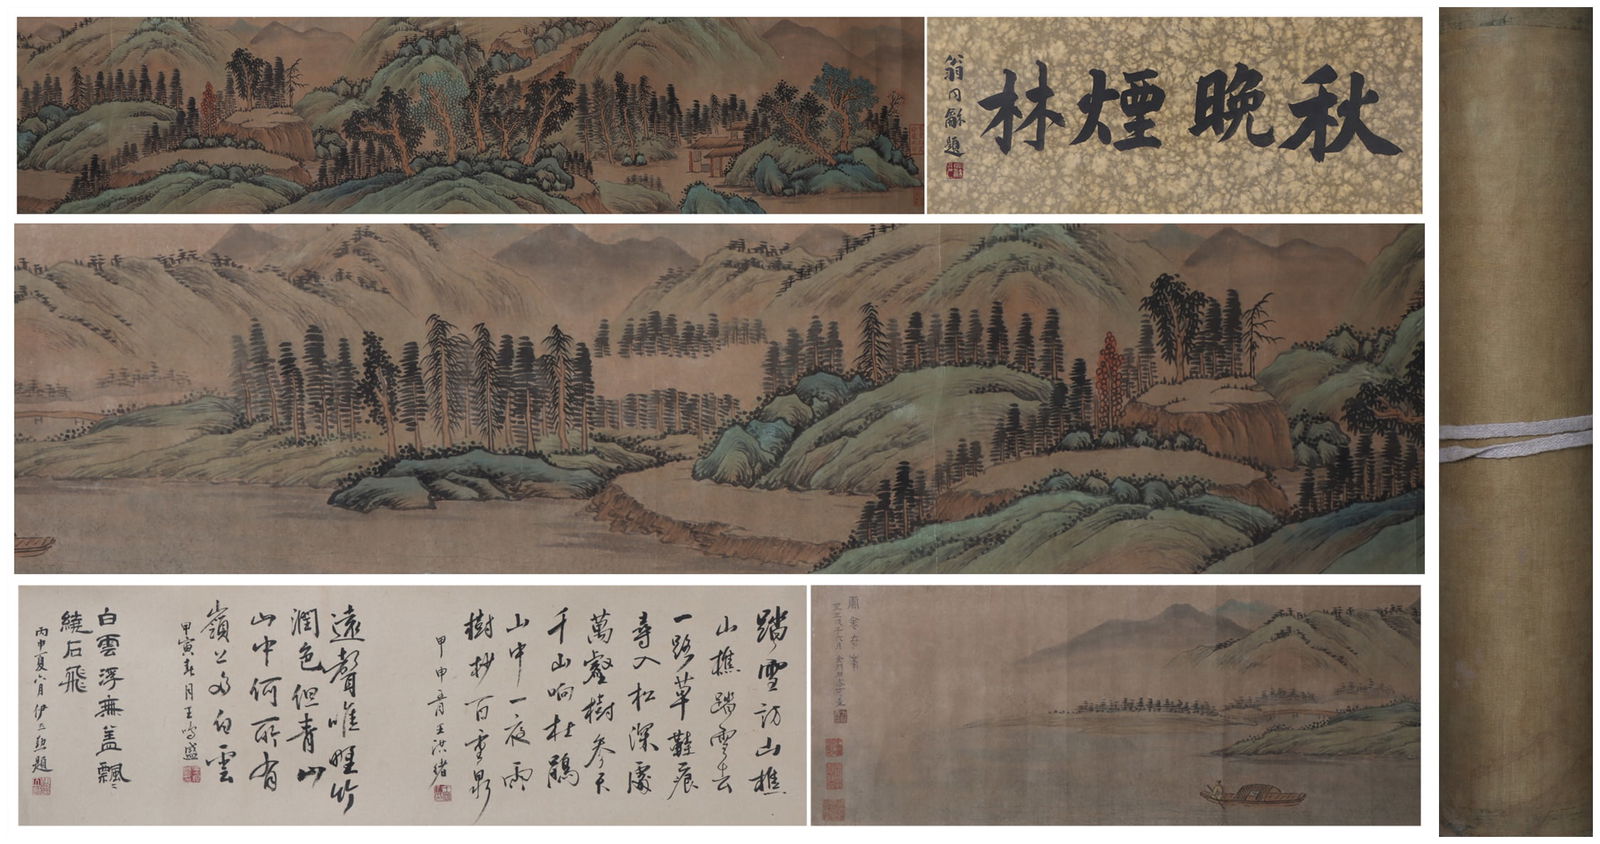 秋晚煙林
翁同龢題
踏雪訪山樵
山樵踏雪去
一路草鞋痕
尋入松深處
萬壑樹參天
千山响杜鵑
山中一夜雨
樹杪百重泉
甲申 月王洪緒
遠聲唯野竹
潤色但青山
山中何所有
嶺上多白雲
甲寅春月王鳴盛
白雲浮無蓋飄〻
繞石飛
丙申夏六月伊立勳題